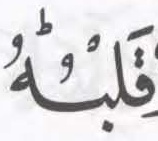 قَلْبُهٗ ؕ